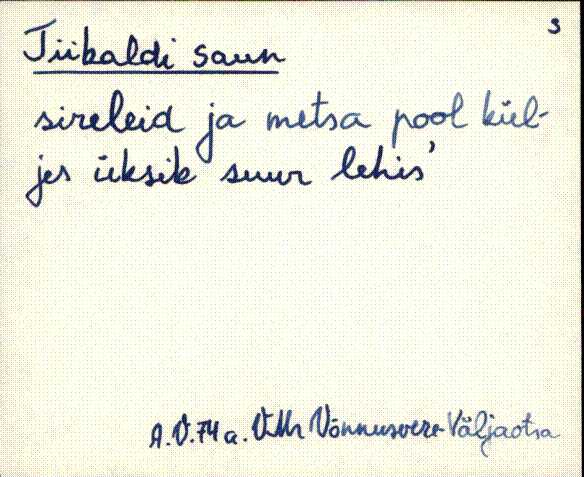 3
Tiibaldi saun
sireleid ja metsa pool kül-
jes üksik suur lehis'
A.V.74 a. VMr Võnnusvere Väljaotsa